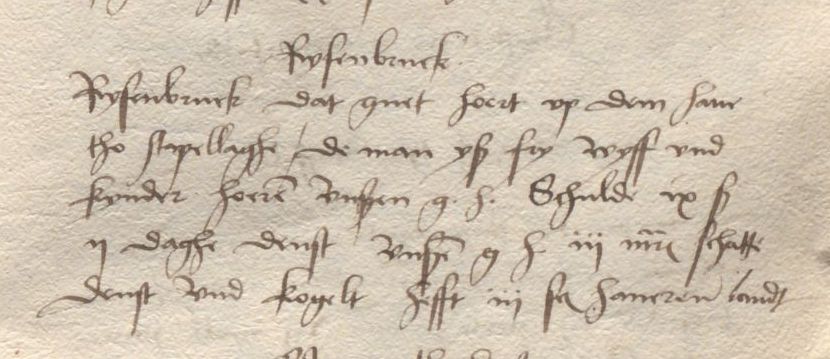 Rysenbruck
Rysenbruck dat guet hoert vp dem haue
tho stapellaghe / de man ys fry wyff vnd
kynder hoeren vnsen g. h. Schulde ix ß
ij daghe denst vnsen g h. iij schatte
denst vnd kogelt hefft iij haueren landt